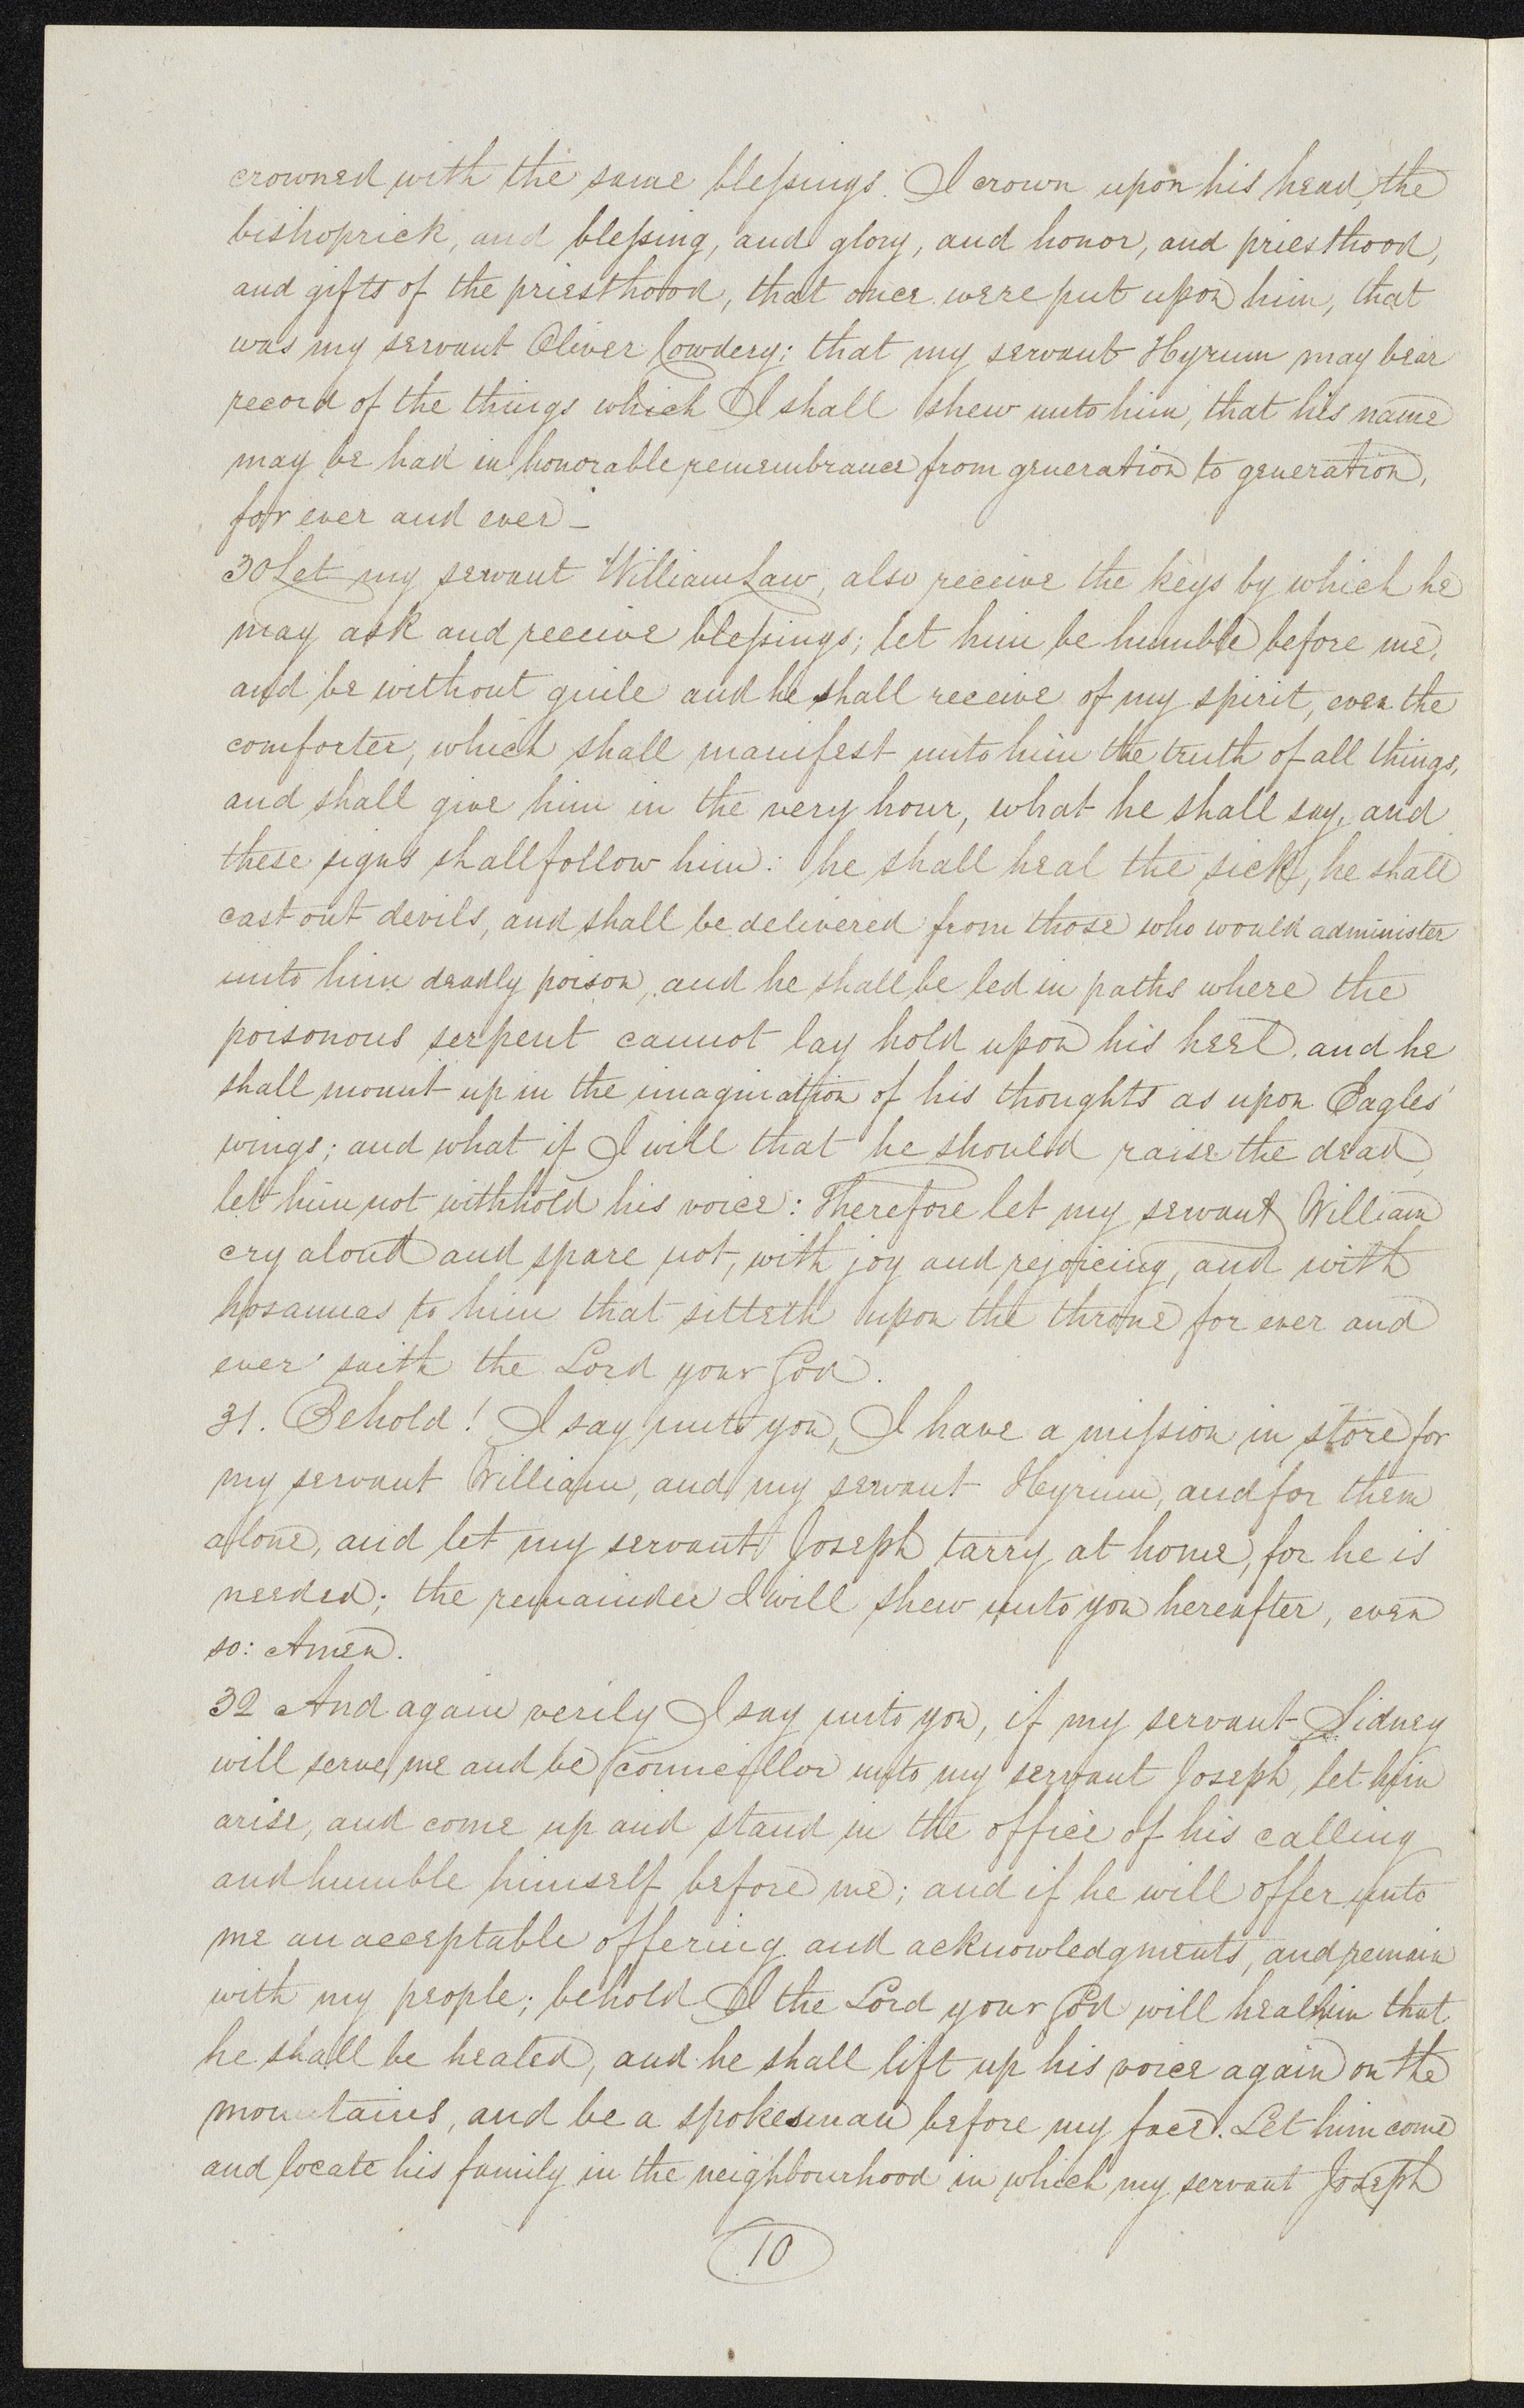 crowned with the same blessings. I crown upon his head, the
bishoprick, and blessing, and glory, and honor, and priesthood,
and gifts of the priesthood, that once were put upon him, that
was my servant Oliver Cowdery; that my servant Hyrum may bear
record of the things which I shall shew unto him, that his name
may be had in honorable remembrance from generation to generation,
for ever and ever —
30 Let my servant William Law, also receive the keys by which he
may ask and receive blessings; let him be humble before me,
and be without guile and he shall receive of my spirit, even the
comforter, which shall manifest unto him the truth of all things,
and shall give him in the very hour, what he shall say, and
these signs shall follow him: he shall heal the sick, he shall
cast out devils, and shall be delivered from those who would administer
unto him deadly poison, and he shall be led in paths where the
poisonous serpent cannot lay hold upon his heel, and he
shall mount up in the imagination of his thoughts as upon Eagles'
wings; and what if I will that he should raise the dead,
let him not withhold his voice: Therefore let my servant William
cry aloud and spare not, with joy and rejoicing, and with
hosannas to him that sitteth upon the throne for ever and
ever saith the Lord your God.
31. Behold! I say unto you, I have a mission in store for
my servant William, and my servant Hyrum, and for them
alone, and let my servant Joseph tarry at home, for he is
needed; the remainder I will shew unto you hereafter, even
so: Amen.
32 And again verily I say unto you, if my servant Sidney
will serve me and be councillor unto my servant Joseph, let him
arise, and come up and stand in the office of his calling
and humble himself before me; and if he will offer unto
me an acceptable offering and acknowledgments, and remain
with my people; behold I the Lord your God will heal him that
he shall be healed, and he shall lift up his voice again on the
mountains, and be a spokesman before my face. Let him come
and locate his family in the neighbourhood in which my servant Joseph
10